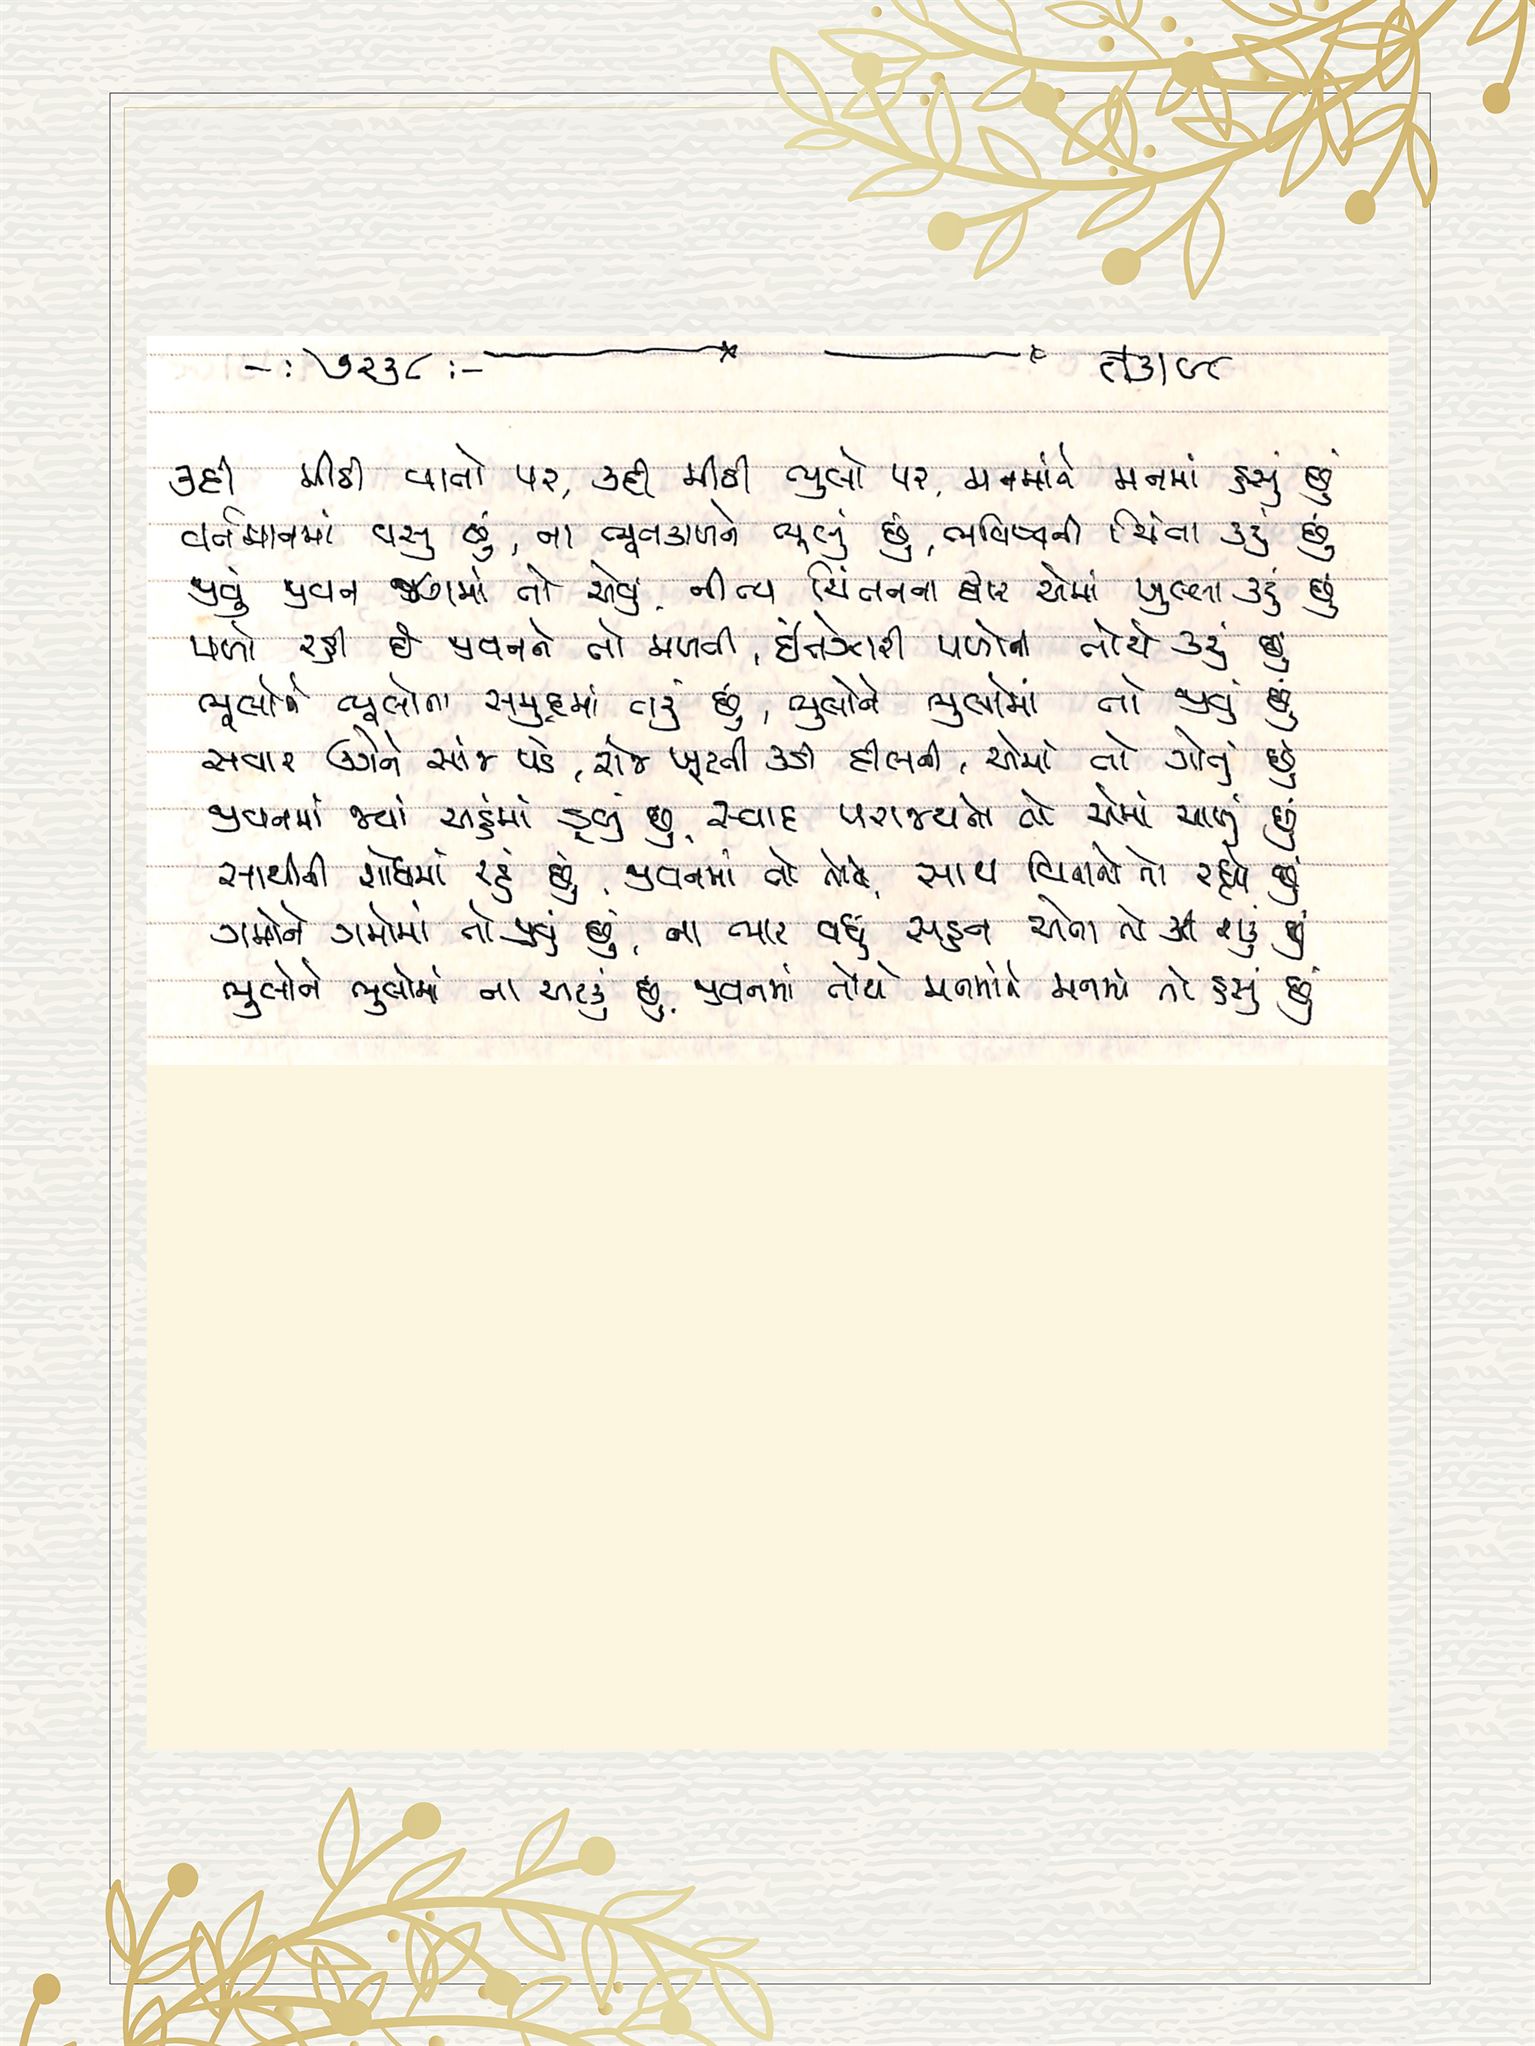 -: ૭૨૩૮ :-
કદી મીઠી વાતો પર, કદી મીઠી ભુલો પર, મનમાંને મનમાં હસું છું
વર્તમાનમાં વસુ છું, ના ભૂતકાળને ભૂલું છું, ભવિષ્યની ચિંતા કરું છું
જીવું જીવન જગમાં તો એવું, નીત્ય ચિંતનના દ્વાર એમાં ખુલ્લા કરું છું
પળો રહી છે જીવનને તો મળતી, ઇંતેજારી પળોના તોયે કરું છું
ભૂલોને ભૂલોના સમુહમાં તરું છું, ભુલોને ભુલોમાં તો જીવું છું
સવાર ઉગેને સાંજ પડે, રોજ ખૂટતી કડી દીલની, એમાં તો ગોતું છું
જીવનમાં જ્યાં અહંમાં ડૂબું છુ, સ્વાદ પરાજયનો તો એમાં ચાખું છું
સાથીની શોધમાં રહું છું, જીવનમાં તો તોયે, સાથ વિનાનો તો રહ્યો છું
ગમોને ગમોમાં તો જીવું છું, ના ભાર વધુ સહન એના તો કરી શકું છું
ભુલોને ભુલોમાં ના અટકું છુ, જીવનમાં તોયે મનમાંને મનમાં તો હસું છું